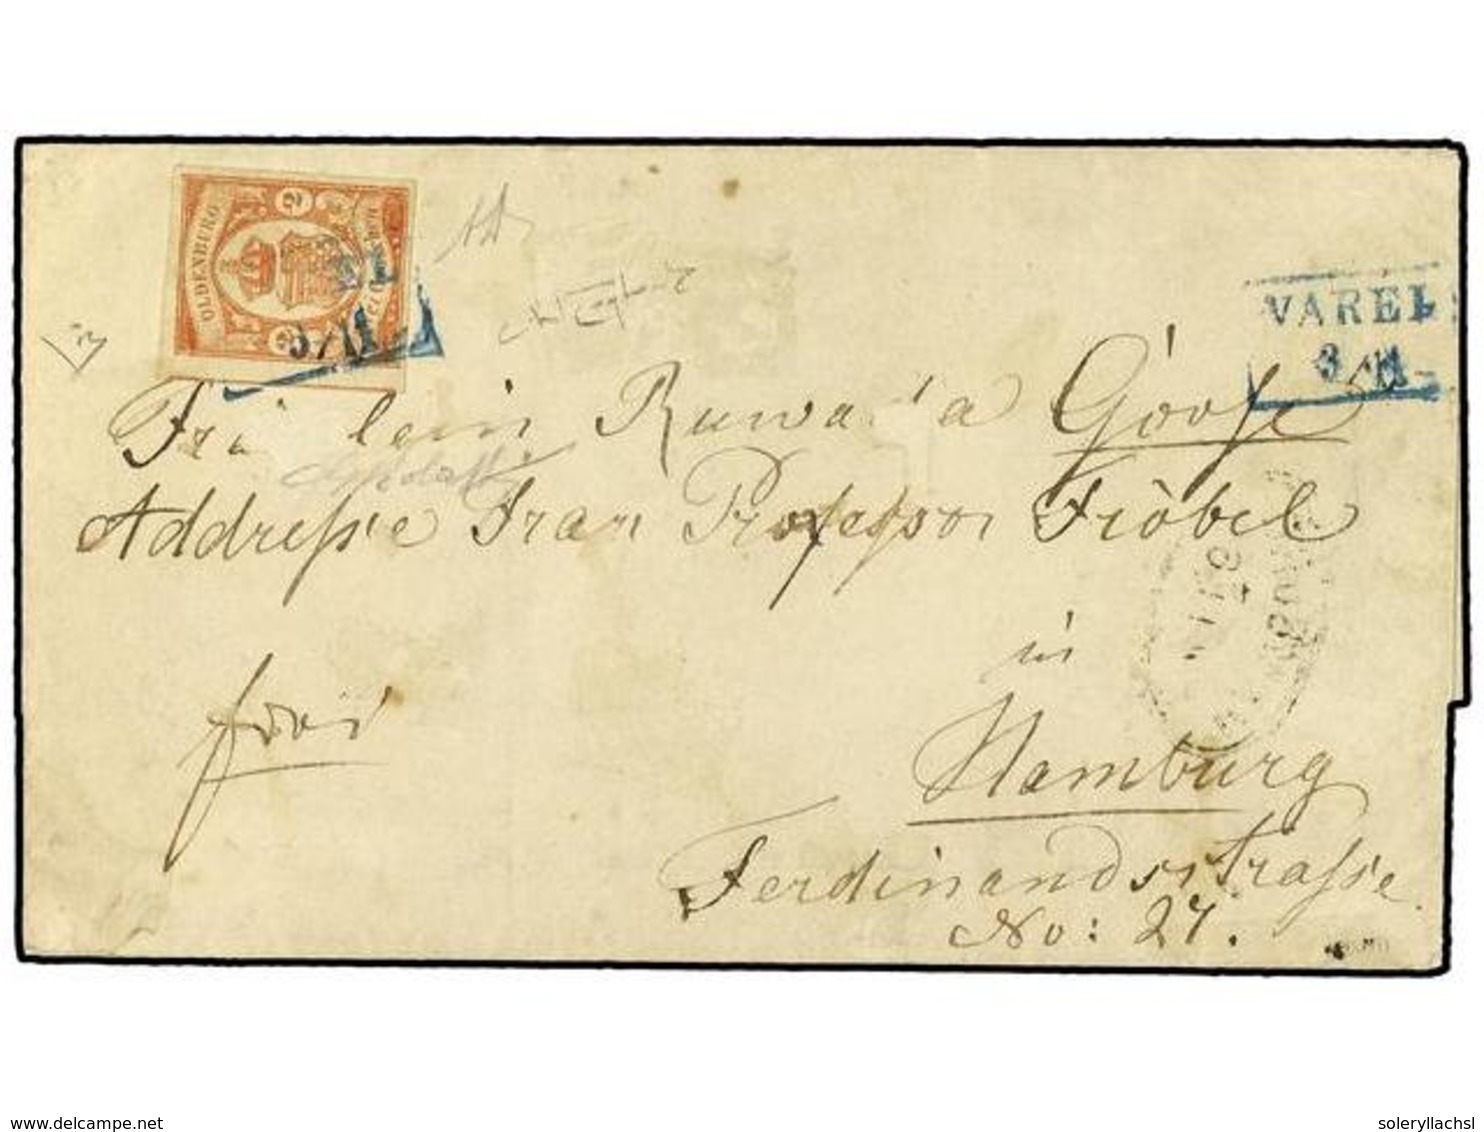 OLDENBURG
2
2
3/11
VAREL
3/11
Fräulein Ruwada Goose
Addresse Frau Professor Fröbel
in
Hamburg
Ferdinandsstrasse
No: 27.
delcampe.net
soleryllachsl